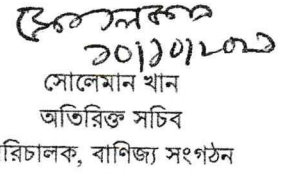 ১০/১০/২০২১
সোলেমান খান
অতিরিক্ত সচিব
রিচালক, বাণিজ্য সংগঠন